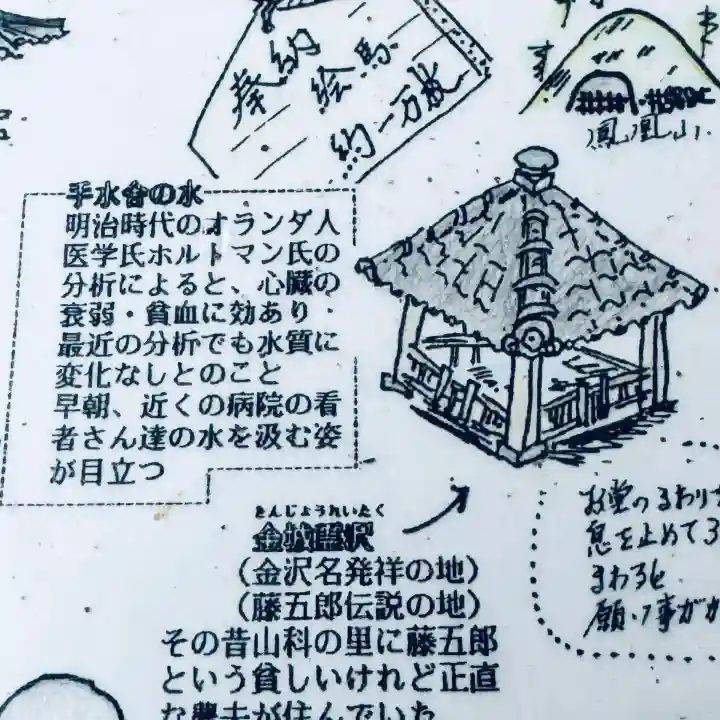 奉納
絵馬
約一万枚
鳳凰山
手水舎の水
明治時代のオランダ人
医学氏ホルトマン氏の
分析によると、心臓の
衰弱・貧血に効あり・
最近の分析でも水質に
変化なしとのこと
早朝、近くの病院の看
者さん達の水を汲む姿
が目立つ
きんじょうれいたく
金城霊沢
(金沢名発祥の地)
(藤五郎伝説の地)
その昔山科の里に藤五郎
という貧しいけれど正直
な農夫が住んでいた
お堂のまわりを
息を止めて3
まわると
願い事がか